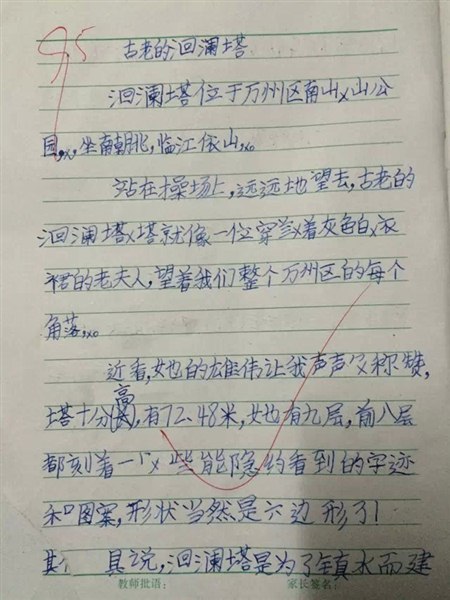 95
古老的洄澜塔
洄澜塔位于万州区南山山公
园,坐南朝北,临江依山。
站在操场上,远远地望去,古老的
洄澜塔塔就像一位穿着灰色白衣
裙的老夫人,望着我们整个万州区的每个
角落。
近看,她的雄伟让我声声称赞,
塔十分高,有72.48米,她也有九层,前八层
都刻着一些能隐约看到的字迹
和图案,形状当然是六边形了
其 具说,洄澜塔是为了镇水而建
教师批语: 家长签名: